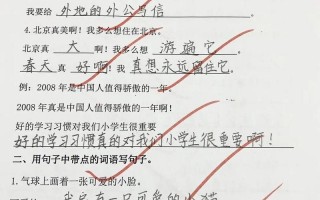 我要给外地的外公写信
4.北京真美啊！我多么想住在北京。
北京真大啊！我多么想游遍它。
春天真好啊！我真想永远留住它。
例：2008年是中国人值得骄傲的一年。
2008年真是中国人值得骄傲的一年啊！
好的学习习惯对我们小学生很重要
好的学习习惯真的对我们小学生很重要啊！
二、用句子中带点的词语写句子。
1.气球上画着一张可爱的小脸。
有一只可爱的小猫